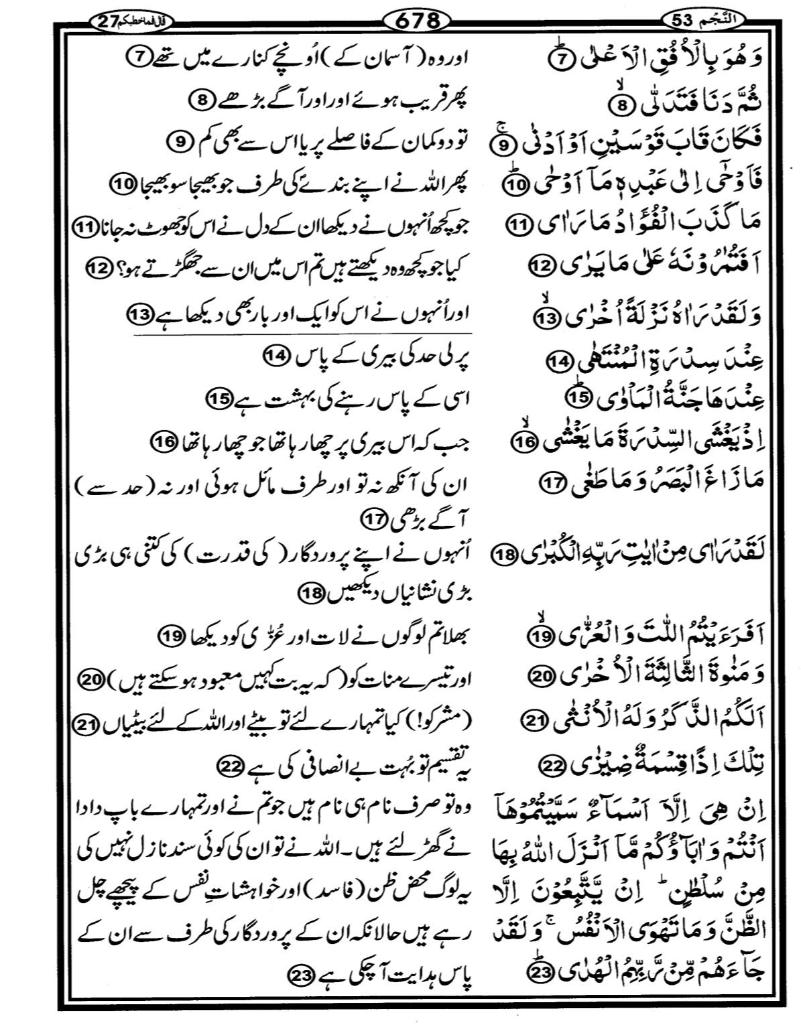 النَّجْم 53
678
قال فما خطبكم 27
وَهُوَ بِالْاُفُقِ الْاَعْلٰى ؕ 7
اور وہ (آسمان کے) اُونچے کنارے میں تھے 7
ثُمَّ دَنَا فَتَدَلّٰى ۙ 8
پھر قریب ہوئے اور اور آگے بڑھے 8
فَكَانَ قَابَ قَوْسَيْنِ اَوْ اَدْنٰى ۚ 9
تو دو کمان کے فاصلے پر یا اس سے بھی کم 9
فَاَوْحٰۤى اِلٰى عَبْدِهٖ مَاۤ اَوْحٰى ؕ 10
پھر اللہ نے اپنے بندے کی طرف جو بھیجا سو بھیجا 10
مَا كَذَبَ الْفُؤَادُ مَا رَاٰى 11
جو کچھ اُنہوں نے دیکھا ان کے دل نے اس کو جھوٹ نہ جانا 11
اَفَتُمٰرُوْنَهٗ عَلٰى مَا يَرٰى 12
کیا جو کچھ وہ دیکھتے ہیں تم اس میں ان سے جھگڑتے ہو؟ 12
وَلَقَدْ رَاٰهُ نَزْلَةً اُخْرٰى ۙ 13
اور اُنہوں نے اس کو ایک اور بار بھی دیکھا ہے 13
عِنْدَ سِدْرَةِ الْمُنْتَهٰى 14
پرلی حد کی بیری کے پاس 14
عِنْدَهَا جَنَّةُ الْمَاْوٰى ؕ 15
اسی کے پاس رہنے کی بہشت ہے 15
اِذْ يَغْشَى السِّدْرَةَ مَا يَغْشٰى ۙ 16
جب کہ اس بیری پر چھا رہا تھا جو چھا رہا تھا 16
مَا زَاغَ الْبَصَرُ وَمَا طَغٰى 17
ان کی آنکھ نہ تو اور طرف مائل ہوئی اور نہ (حد سے)
آگے بڑھی 17
لَقَدْ رَاٰى مِنْ اٰيٰتِ رَبِّهِ الْكُبْرٰى 18
اُنہوں نے اپنے پروردگار (کی قدرت) کی کتنی ہی بڑی
بڑی نشانیاں دیکھیں 18
اَفَرَءَيْتُمُ اللّٰتَ وَالْعُزّٰى ۙ 19
بھلا تم لوگوں نے لات اور عُزّٰی کو دیکھا 19
وَمَنٰوةَ الثَّالِثَةَ الْاُخْرٰى 20
اور تیسرے منات کو (کہ یہ بت کہیں معبود ہو سکتے ہیں) 20
اَلَكُمُ الذَّكَرُ وَلَهُ الْاُنْثٰى 21
(مشرکو!) کیا تمہارے لئے تو بیٹے اور اللہ کے لئے بیٹیاں 21
تِلْكَ اِذًا قِسْمَةٌ ضِيْزٰى 22
یہ تقسیم تو بُہت بے انصافی کی ہے 22
اِنْ هِيَ اِلَّاۤ اَسْمَآءٌ سَمَّيْتُمُوْهَاۤ
اَنْتُمْ وَاٰبَآؤُكُمْ مَّاۤ اَنْزَلَ اللّٰهُ بِهَا
مِنْ سُلْطٰنٍ ؕ اِنْ يَّتَّبِعُوْنَ اِلَّا
الظَّنَّ وَمَا تَهْوَى الْاَنْفُسُ ۚ وَلَقَدْ
جَآءَهُمْ مِّنْ رَّبِّهِمُ الْهُدٰى ؕ 23
وہ تو صرف نام ہی نام ہیں جو تم نے اور تمہارے باپ دادا
نے گھڑ لئے ہیں۔ اللہ نے تو ان کی کوئی سند نازل نہیں کی
یہ لوگ محض ظن (فاسد) اور خواہشات نفس کے پیچھے چل
رہے ہیں حالانکہ ان کے پروردگار کی طرف سے ان کے
پاس ہدایت آ چکی ہے 23